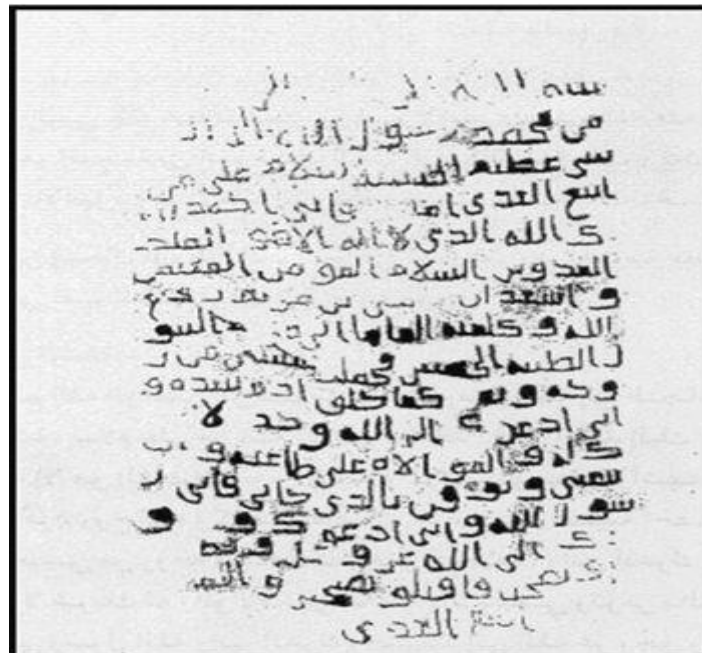 من محمد رسول الله
شي عظيم الحبشة سلام على من
اتبع الهدى اما فاني احمد الي
ك الله الذي لا اله الا هو الملك
القدوس السلام المومن المهيمن
و اشهد ان عيسى بن مريم روح
الله و كلمته القاها الى البتو
ل الطيبة الحصينة فحملت بعيسى من ر
وحه و نفخه كما خلق ادم بيده و
اني ادعوك الى الله وحده لا
شريك له و الموالاة على طاعته و ان
تتبعني و توقن بالذي جاني فاني ر
سول الله و اني ادعوك و
ك الى الله عز و جل و قد
نصحت فاقبلو نصيحتي و السلم
اتبع الهدى